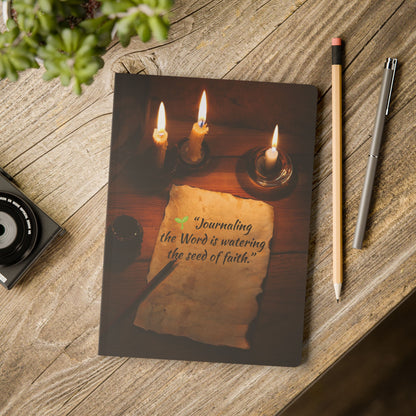 “Journaling
the Word is watering
the seed of faith.”